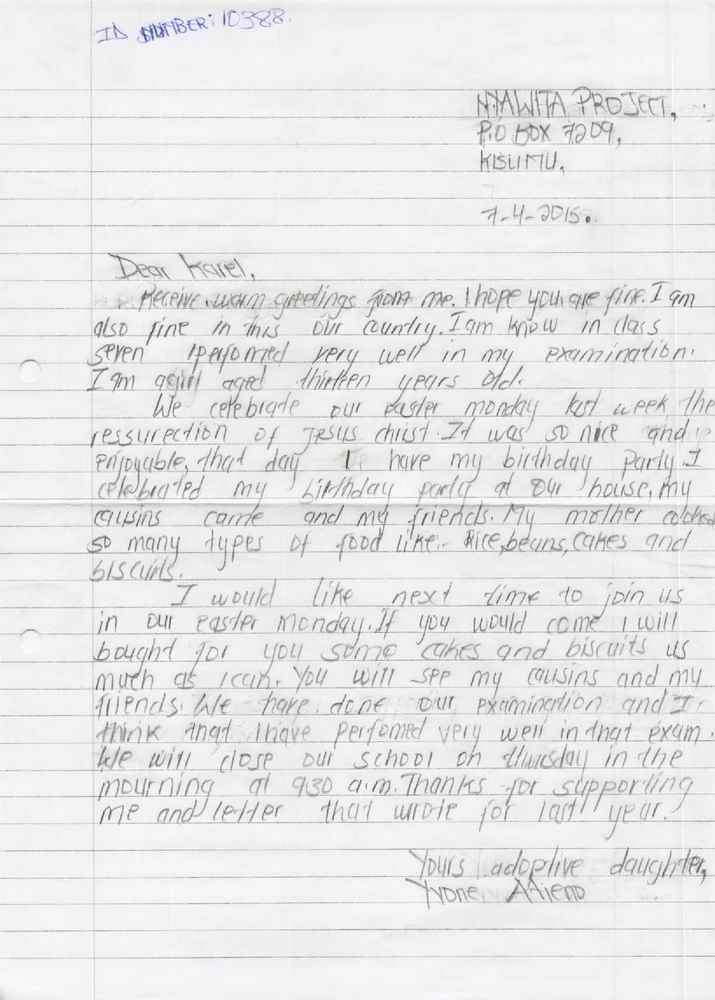 ID NUMBER: 10388.
NYAWITA PROJECT,
P.O BOX 7209,
KISUMU,
7-4-2015.
Dear Karel,
Receive warm greetings from me. I hope you are fine. I am
also fine in this our country. I am know in class
seven I performed very well in my examination.
I am a girl aged thirteen years old.
We celebrate our easter monday last week, the
ressurection of Jesus christ. It was so nice and
enjoyable, that day I have my birthday party. I
celebrated my birthday party at our house, my
causins came and my friends. My mother cooked
so many types of food like:- Rice, beans, cakes and
biscuits.
I would like next time to join us
in our easter monday. If you would come I will
bought for you some cakes and biscuits us
much as I can. You will see my causins and my
friends. We have done our examination and I
think that I have perfomed very well in that exam.
We will close our school on thursday in the
mourning at 9:30 a.m. Thanks for supporting
me and letter that wrote for last year.
Yours adoptive daughter,
Yvone Atieno